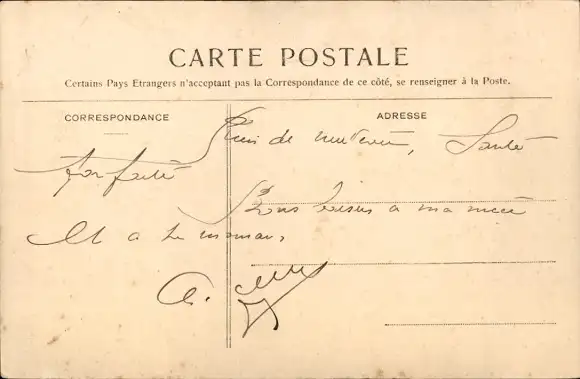 CARTE POSTALE
Certains Pays Etrangers n'acceptent pas la Correspondance de ce côté, se renseigner à la Poste.
CORRESPONDANCE
ADRESSE
Rien de nouveau, Santé
parfaite
Bons baisers a ma nièce
Et a sa maman,
A.